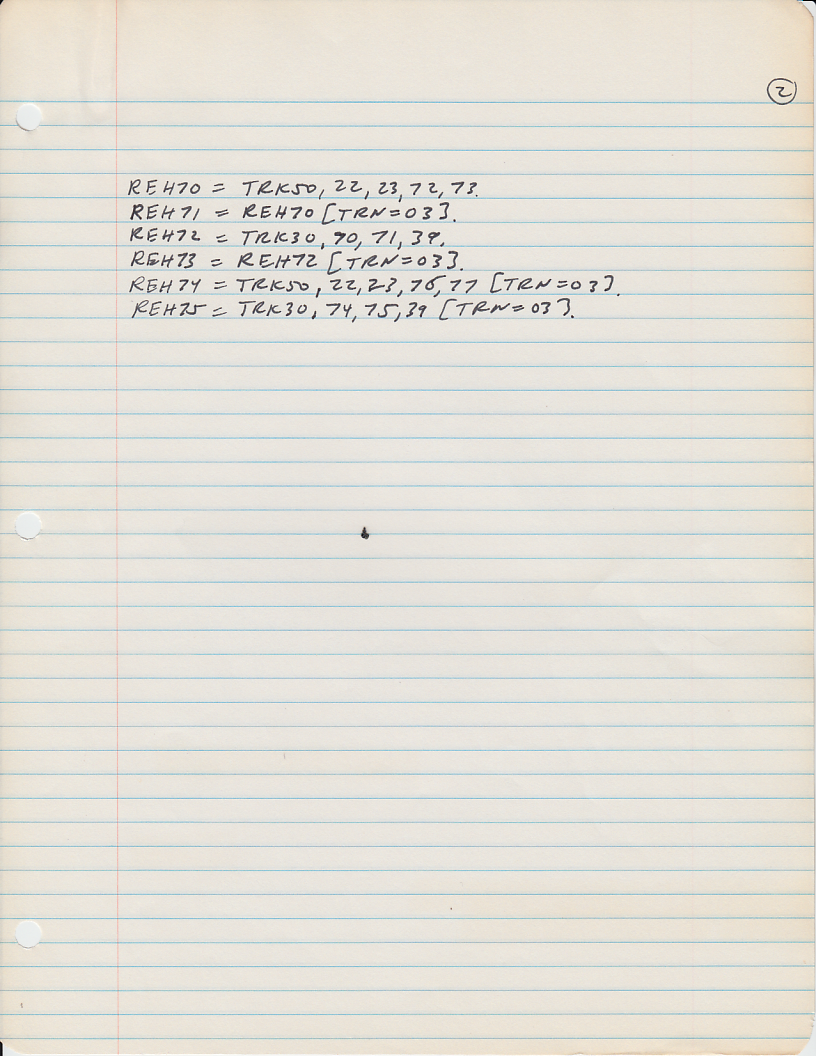 2
REH70 = TRK50, 22, 23, 72, 73.
REH71 = REH70 [TRN=03].
REH72 = TRK30, 70, 71, 39.
REH73 = REH72 [TRN=03].
REH74 = TRK50, 22, 23, 76, 77 [TRN=03].
REH75 = TRK30, 74, 75, 39 [TRN=03].